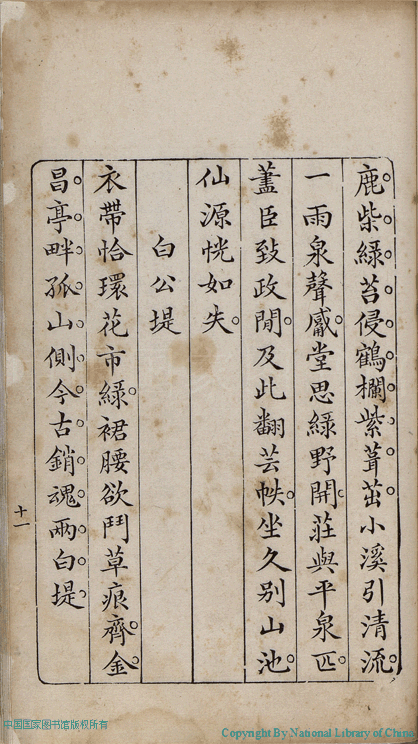 鹿柴綠苔侵鶴欄紫茸茁小溪引清流
一雨泉聲觱堂思綠野開莊與平泉匹
藎臣致政閒及此翻芸帙坐久别山池
仙源恍如失
白公堤
衣帶恰環花市綠裙腰欲鬥草痕齊金
昌亭畔孤山側今古銷魂兩白堤
十一
中国国家图书馆版权所有
Copyright By National Library of China